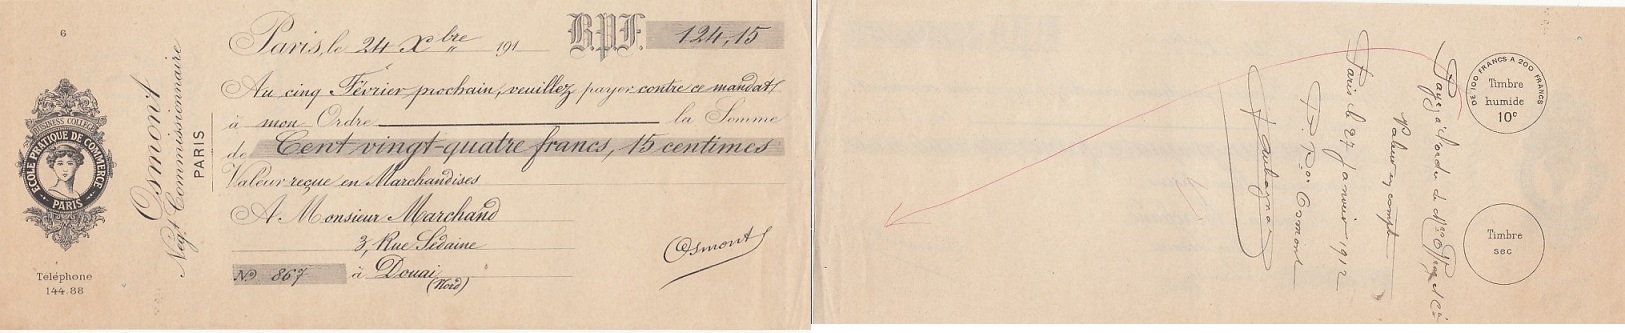 6
BUSINESS COLLEGE
ECOLE PRATIQUE DE COMMERCE
PARIS
Téléphone
144.88
Osmont
Negt Commissionnaire
PARIS
Paris, le 24 Xbre 191
B.P.F. 124,15
Au cinq Février prochain, veuillez payer contre ce mandat
à mon Ordre la Somme
de Cent vingt-quatre francs, 15 centimes
Valeur reçue en Marchandises
A Monsieur Marchand
3, Rue Sedaine
No 867 à Douai
(Nord)
Osmont
DE 100 FRANCS A 200 FRANCS
Timbre
humide
10c
Timbre
sec
Payez à l'ordre de et Cie
Valeur en compte
Paris le 27 Janvier 1912
P. Pon Osmont